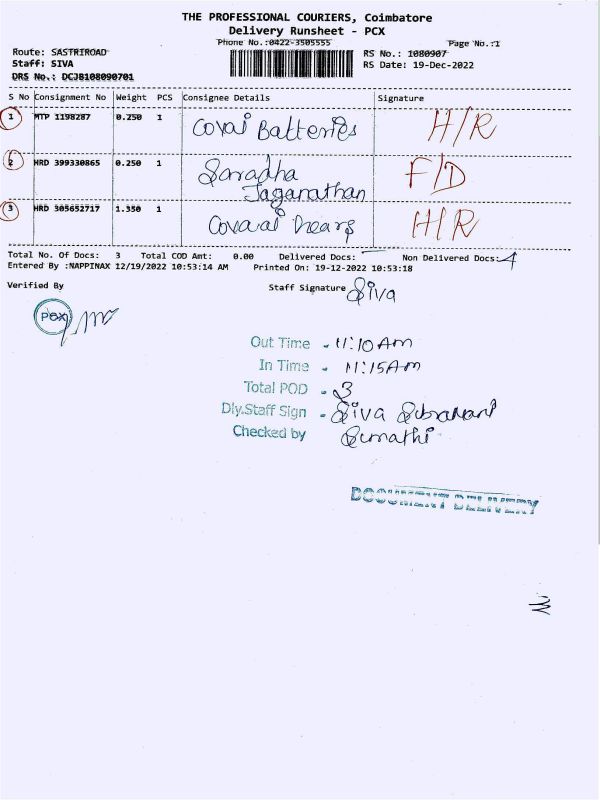 THE PROFESSIONAL COURIERS, Coimbatore
Delivery Runsheet - PCX
Phone No.:0422-3505555
Page No.:1
Route: SASTRIROAD
RS No.: 1080907
Staff: SIVA
RS Date: 19-Dec-2022
DRS No.: DCJB108090701
S No Consignment No Weight PCS Consignee Details Signature
1 MTP 1198287 0.250 1 Covai Batteries H/R
2 HRD 399330865 0.250 1 Saradha Jaganathan F/D
3 HRD 305652717 1.350 1 Covaai H/R
Total No. Of Docs: 3 Total COD Amt: 0.00 Delivered Docs: Non Delivered Docs:
Entered By :NAPPINAX 12/19/2022 10:53:14 AM Printed On: 19-12-2022 10:53:18
Verified By
Staff Signature Siva
PCX
Out Time - 11:10 AM
In Time - 11:15 AM
Total POD - 3
Dly.Staff Sign - Siva
Checked by Sumathi
DOCUMENT DELIVERY